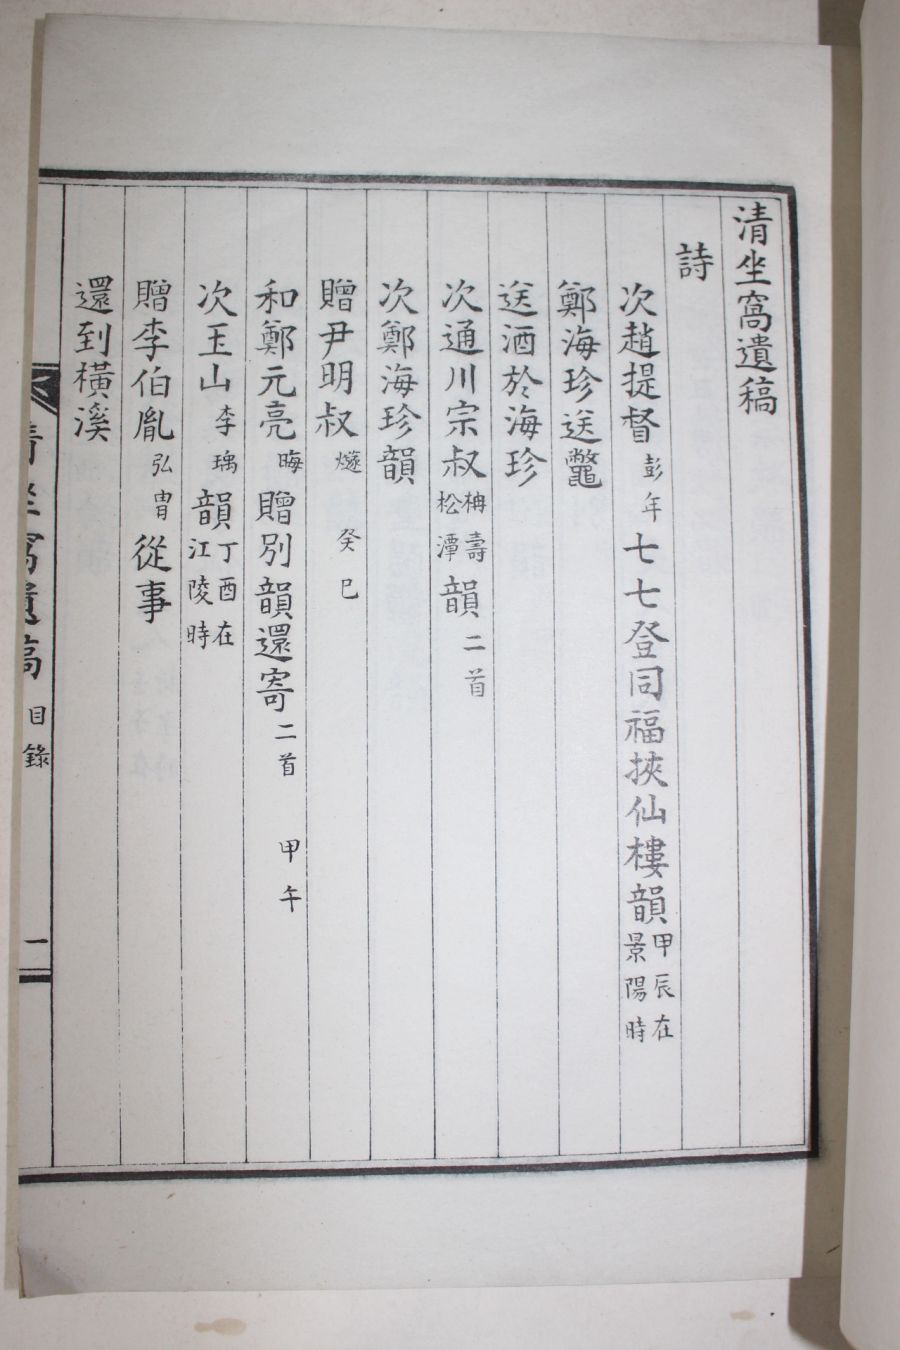 清坐窩遺稿
詩
次趙提督彭年七七登同福挾仙樓韻甲辰在景陽時
鄭海珍送鼈
送酒於海珍
次通川宗叔柟壽松潭韻二首
次鄭海珍韻
贈尹明叔燧 癸巳
和鄭元亮晦贈別韻還寄二首 甲午
次玉山李瑀韻丁酉在江陵時
贈李伯胤弘冑從事
還到橫溪
清坐窩遺稿 目錄 一